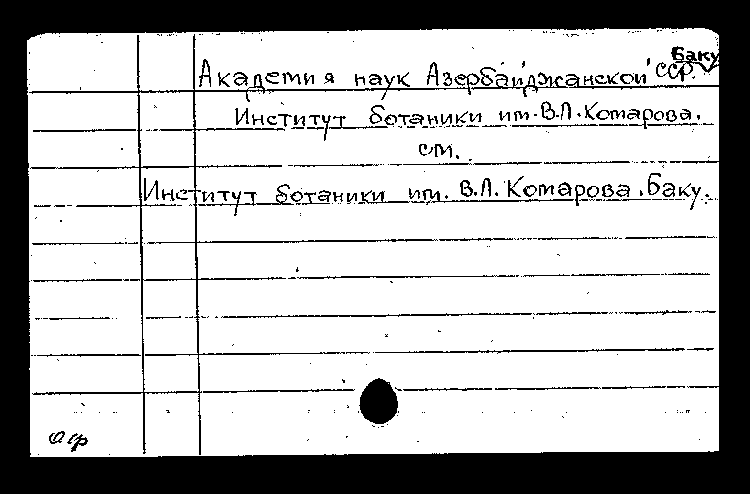 Баку
Академия наук Азербайджанской ССР.
Институт ботаники им. В.Л. Комарова.
см.
Институт ботаники им. В.Л. Комарова. Баку.